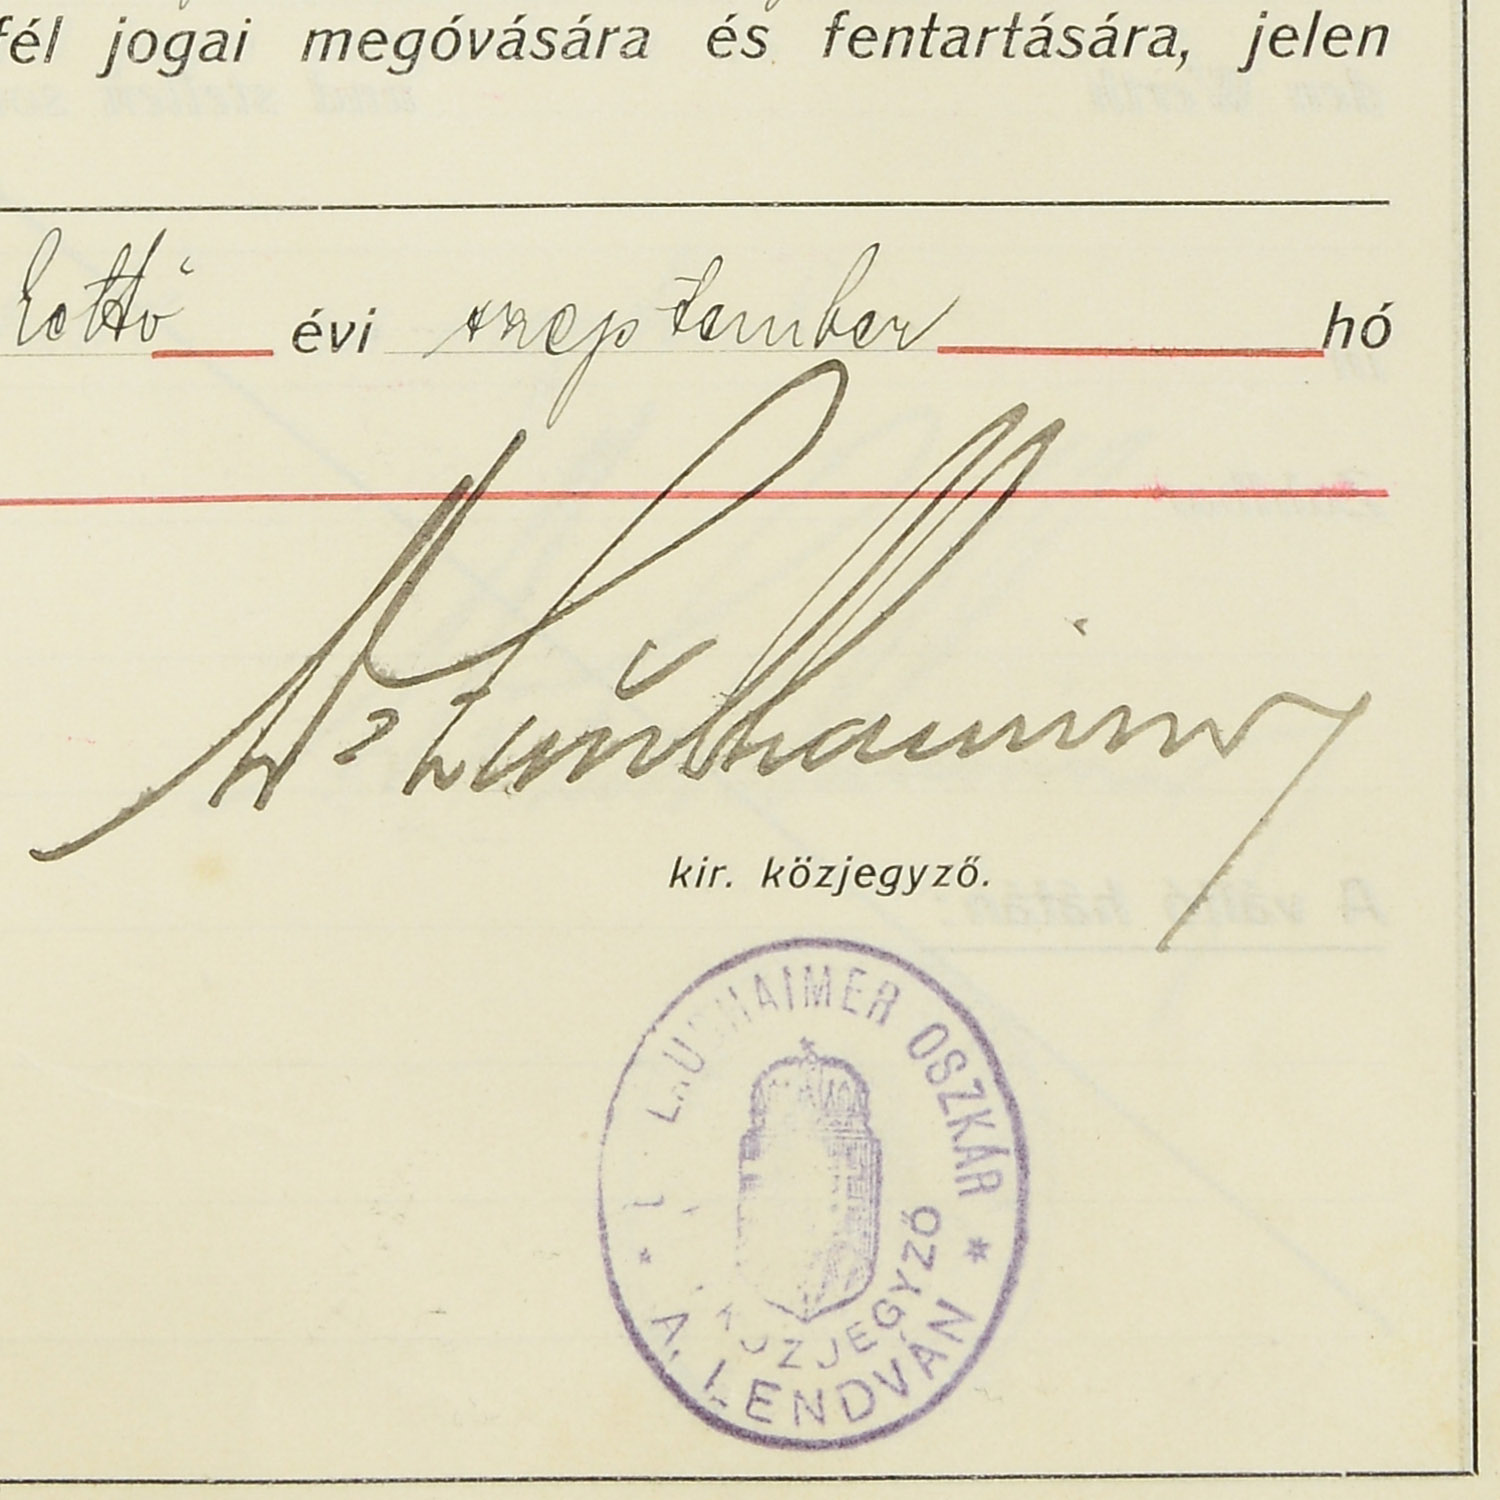 fél jogai megóvására és fentartására, jelen
évi szeptember hó
kir. közjegyző.
LAUBHAIMER OSZKÁR
KÖZJEGYZŐ
A. LENDVÁN